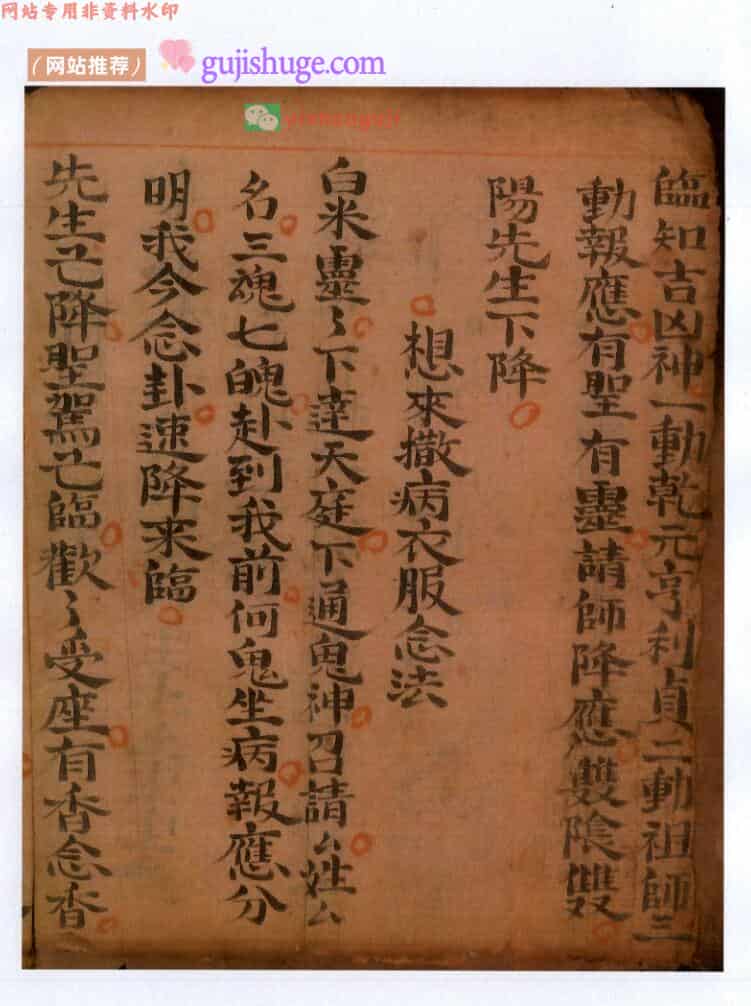 网站专用非资料水印
（网站推荐） gujishuge.com
臨知吉凶神一動乾元亨利貞二動祖師三
動報應有聖有靈請師降應雙陰雙
陽先生下降
想來撒病衣服念法
白米靈〻下達天庭下通鬼神召請厶姓厶
名三魂七魄赴到我前何鬼坐病報應分
明我今念卦速降来臨
先生亡降聖駕亡臨歡〻受座有香念香